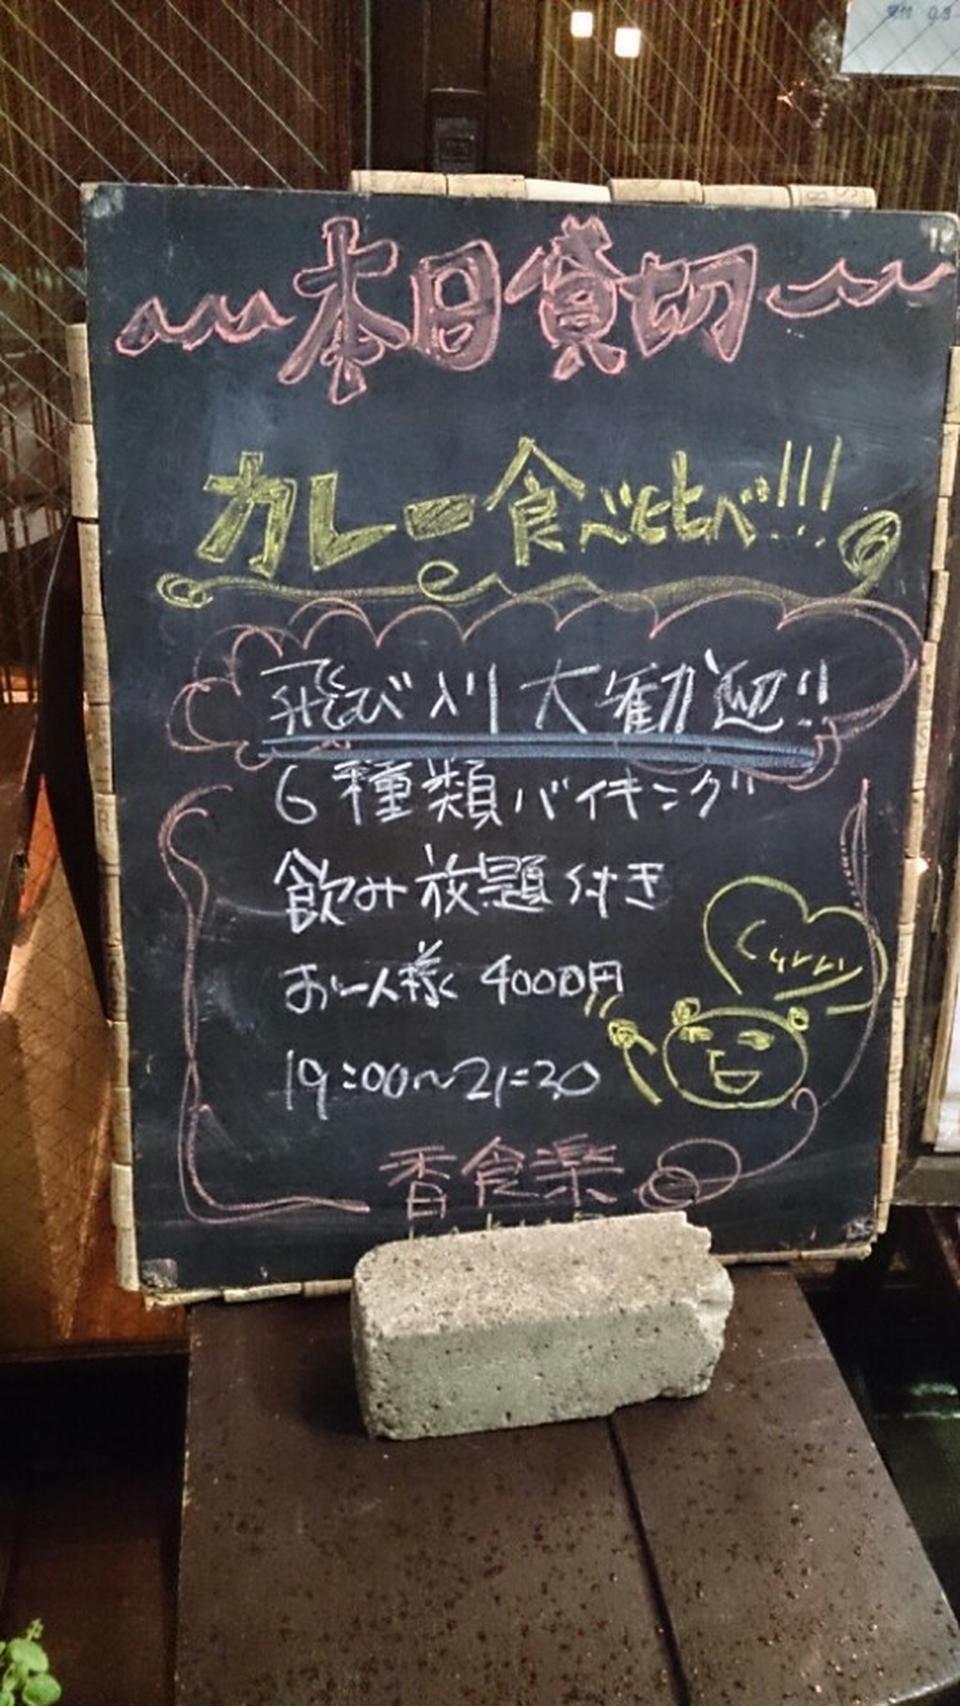 本日貸切
カレー食べ比べ!!!
飛び入り大歓迎!!
6種類バイキング
飲み放題付き
お一人様 4000円
Curry
19:00~21:30
香食楽